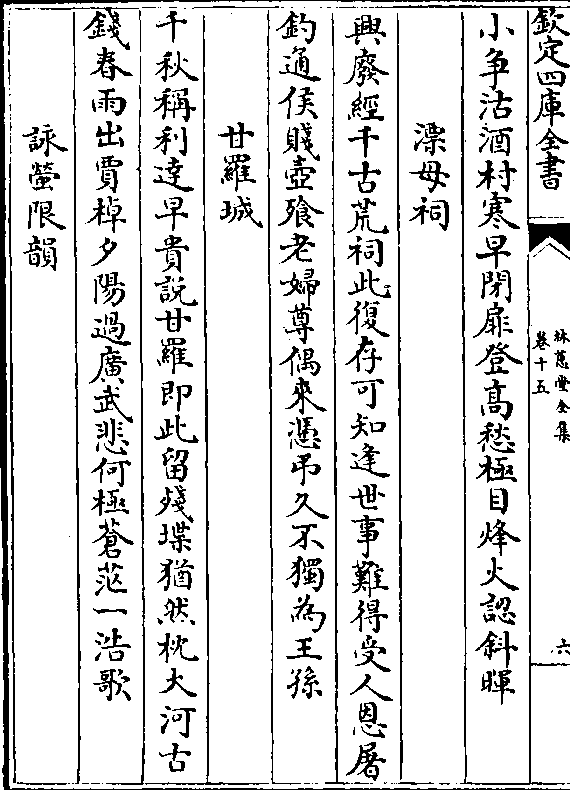 欽定四庫全書
林蕙堂全集
卷十五
六
小争沽酒村寒早閉扉登高愁極目烽火認斜暉
漂母祠
興廢經千古荒祠此復存可知逢世事難得受人恩屠
釣通侯賤壺飱老婦尊偶來憑弔久不獨為王孫
甘羅城
千秋稱利達早貴説甘羅即此留殘堞猶然枕大河古
錢春雨出賈棹夕陽過廣武悲何極蒼茫一浩歌
詠螢限韻